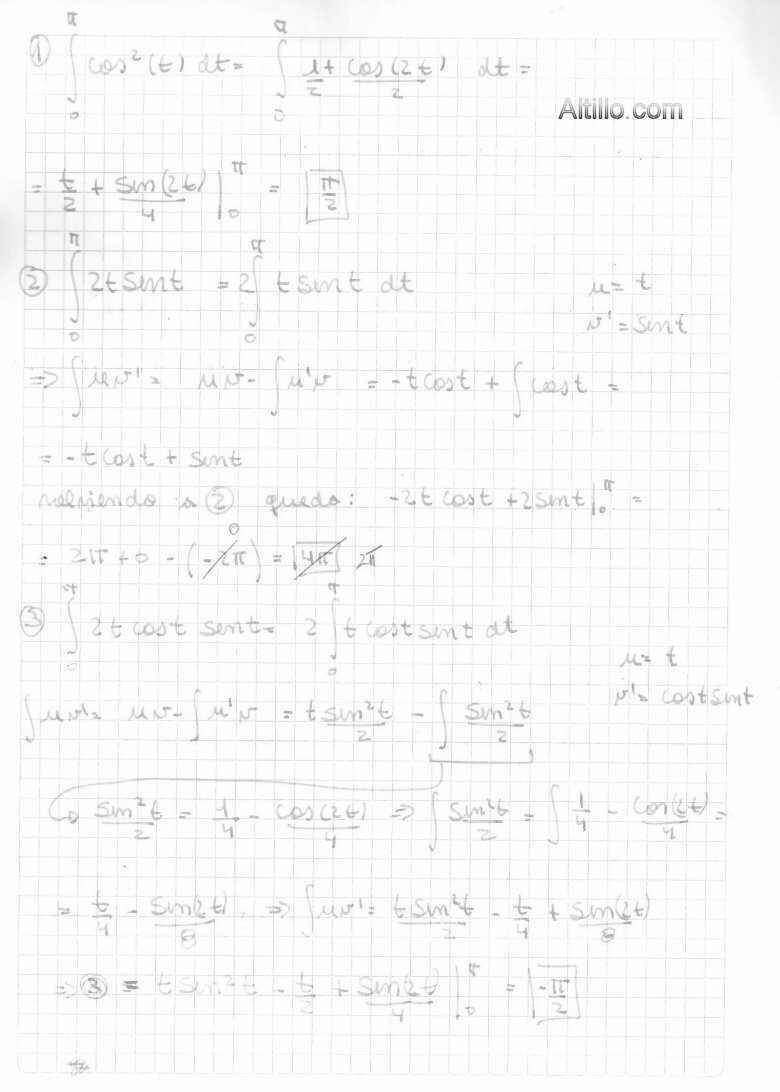 ① ∫₀^π cos²(t) dt = ∫₀^π 1/2 + cos(2t)/2 dt =
Altillo.com
= t/2 + sin(2t)/4 |₀^π = π/2
② ∫₀^π 2t sint = 2∫₀^π t sint dt
u = t
v' = sint
=> ∫uv' = uv - ∫u'v = -t cost + ∫cost =
= -t cost + sint
volviendo a ② queda: -2t cost + 2sint |₀^π =
= 2π + 0 - (-2π) 0 = 4π 2π
③ ∫₀^π 2t cost sent = 2∫₀^π t cost sent dt
u = t
v' = cost sint
∫uv' = uv - ∫u'v = t sin²t/2 - ∫ sin²t/2
↳ sin²t/2 = 1/4 - cos(2t)/4 => ∫ sin²t/2 = ∫ 1/4 - cos(2t)/4 =
= t/4 - sin(2t)/8 => ∫uv' = t sin²t/2 - t/4 + sin(2t)/8
=> ③ = t sin²t - t/2 + sin(2t)/4 |₀^π = -π/2